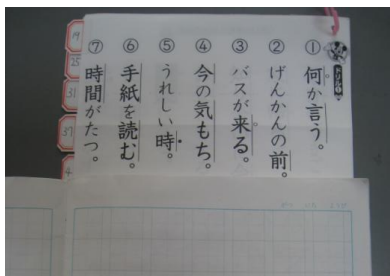 ① 何か言う。
② げんかんの前。
③ バスが来る。
④ 今の気もち。
⑤ うれしい時。
⑥ 手紙を読む。
⑦ 時間がたつ。
19
25
31
37